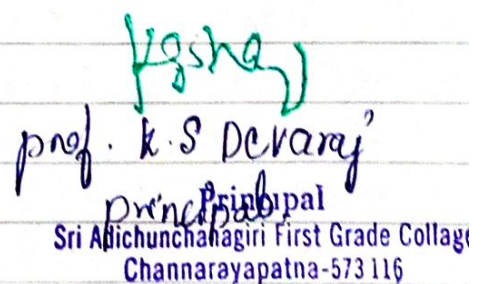 prof. K.S Devaraj
principal.
Principal
Sri Adichunchanagiri First Grade Collage
Channarayapatna-573 116